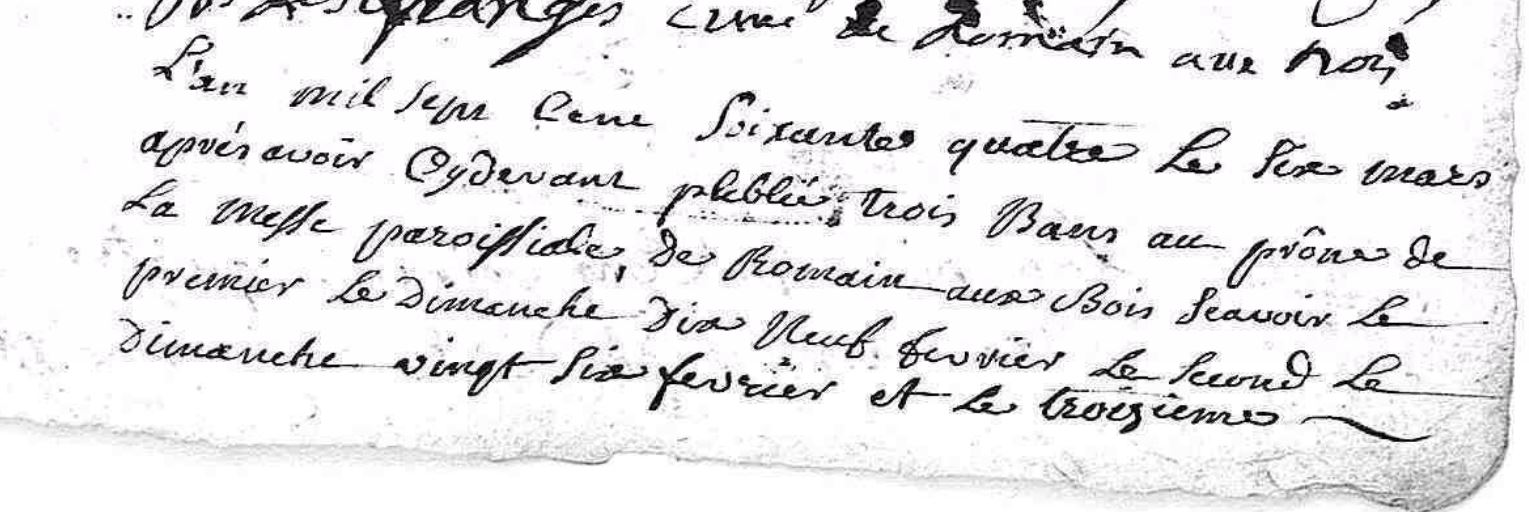 Desgranges curé de Romain aux bois
L'an mil sept Cent Soixante quatre le Six mars
après avoir Cydevant publié trois Bans au prône de
La Messe paroissiale de Romain aux Bois Scavoir le
premier le Dimanche Dix Neuf fevrier le second le
Dimanche vingt Six fevrier et le troisieme